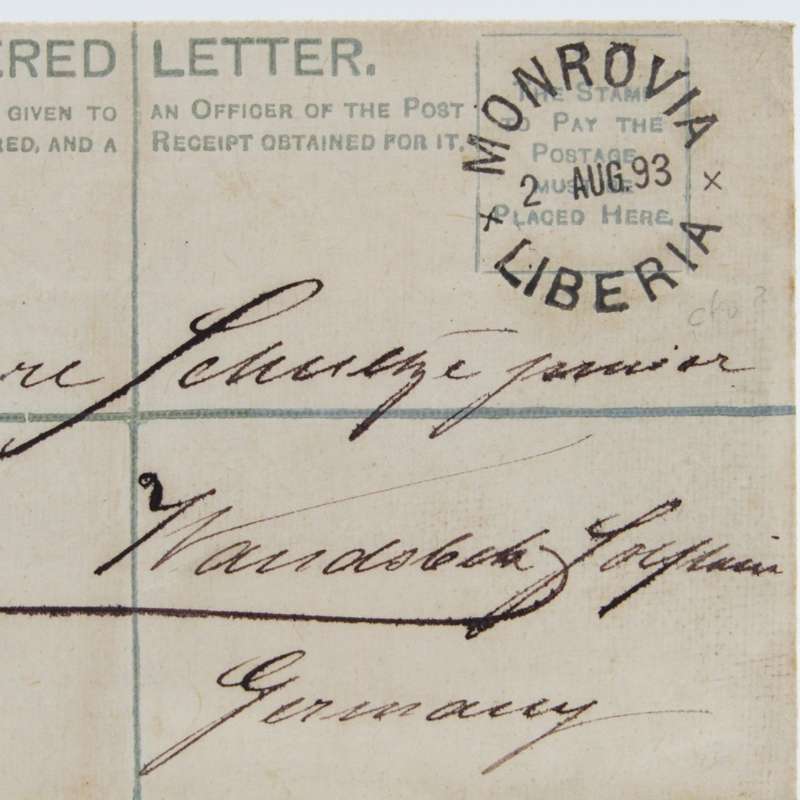 ERED LETTER.
GIVEN TO AN OFFICER OF THE POST
RED, AND A RECEIPT OBTAINED FOR IT.
THE STAMP
TO PAY THE
POSTAGE
MUST BE
PLACED HERE.
MONROVIA
2 AUG. 93
LIBERIA
re Schultze junior
Wandsbeck Holstein
Germany